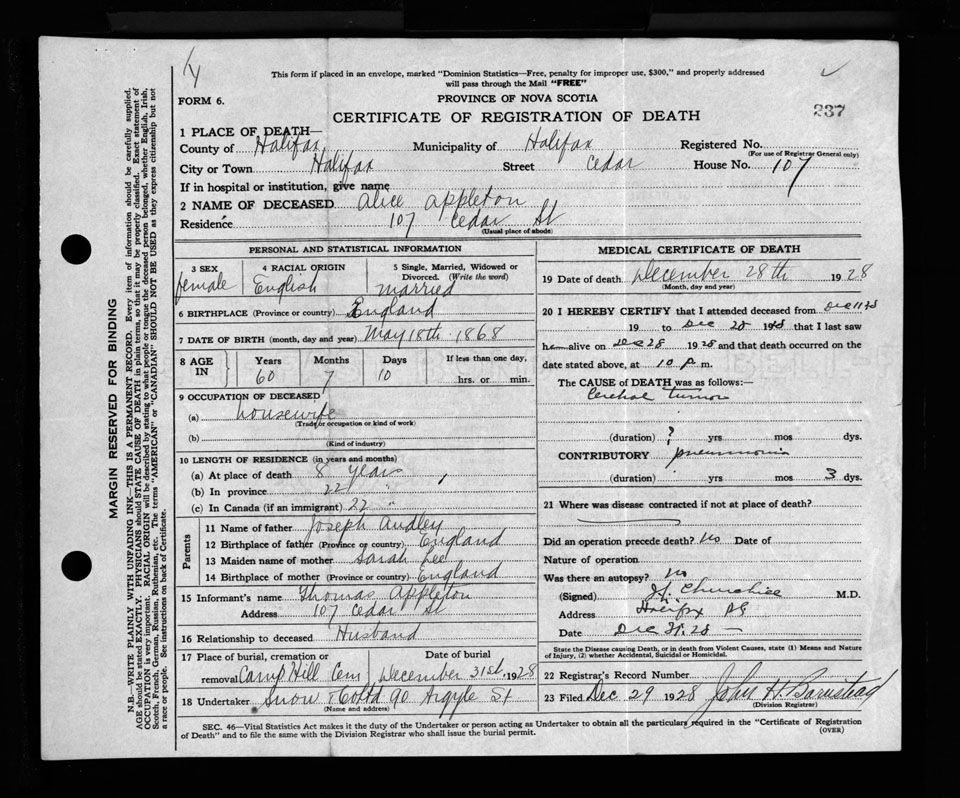 This form if placed in an envelope, marked "Dominion Statistics—Free, penalty for improper use, $300," and properly addressed
will pass through the Mail "FREE"
FORM 6.
PROVINCE OF NOVA SCOTIA
CERTIFICATE OF REGISTRATION OF DEATH
237
1 PLACE OF DEATH—
County of Halifax Municipality of Halifax Registered No.
(For use of Registrar General only)
City or Town Halifax Street Cedar House No. 107
If in hospital or institution, give name
2 NAME OF DECEASED Alice Appleton
Residence 107 Cedar St
(Usual place of abode)
PERSONAL AND STATISTICAL INFORMATION
3 SEX 4 RACIAL ORIGIN 5 Single, Married, Widowed or
Divorced. (Write the word)
female English married
6 BIRTHPLACE (Province or country) England
7 DATE OF BIRTH (month, day and year) May 18th 1868
8 AGE IN Years Months Days If less than one day,
60 7 10 hrs. or min.
9 OCCUPATION OF DECEASED
(a) housewife
(Trade or occupation or kind of work)
(b)
(Kind of industry)
10 LENGTH OF RESIDENCE (in years and months)
(a) At place of death 8 years
(b) In province 22 "
(c) In Canada (if an immigrant) 22 "
Parents
11 Name of father Joseph Audley
12 Birthplace of father (Province or country) England
13 Maiden name of mother Sarah Lee
14 Birthplace of mother (Province or country) England
15 Informant's name Thomas Appleton
Address 107 Cedar St
16 Relationship to deceased Husband
17 Place of burial, cremation or Date of burial
removal Camp Hill Cem December 31st 1928
18 Undertaker Snow & Co Ltd 90 Argyle St
(Name and address)
MEDICAL CERTIFICATE OF DEATH
19 Date of death December 28th 1928
(Month, day and year)
20 I HEREBY CERTIFY that I attended deceased from Dec 11 28
19 to Dec 28 1928 that I last saw
h alive on Dec 28 1928 and that death occurred on the
date stated above, at 10 P m.
The CAUSE of DEATH was as follows:—
Cerebral Tumor
(duration) ? yrs mos dys.
CONTRIBUTORY pneumonia
(duration) yrs mos 3 dys.
21 Where was disease contracted if not at place of death?
Did an operation precede death? No Date of
Nature of operation
Was there an autopsy? No
(Signed) Churchill M.D.
Address Halifax NS
Date Dec 28
State the Disease causing Death, or in death from Violent Causes, state (1) Means and Nature
of Injury, (2) whether Accidental, Suicidal or Homicidal.
22 Registrar's Record Number
23 Filed Dec 29 1928 John H. Barnstead
(Division Registrar)
SEC. 46—Vital Statistics Act makes it the duty of the Undertaker or person acting as Undertaker to obtain all the particulars required in the "Certificate of Registration
of Death" and to file the same with the Division Registrar who shall issue the burial permit.
(OVER)
MARGIN RESERVED FOR BINDING
N.B.—WRITE PLAINLY WITH UNFADING INK—THIS IS A PERMANENT RECORD. Every item of information should be carefully supplied.
AGE should be stated EXACTLY. PHYSICIANS should STATE CAUSE OF DEATH in plain terms, so that it may be properly classified. Exact statement of
OCCUPATION is very important. RACIAL ORIGIN will be described by stating to what people or tongue the deceased person belonged, whether English, Irish,
Scotch, French, German, Russian, Ruthenian, etc. The terms "AMERICAN" or "CANADIAN" SHOULD NOT BE USED as they express citizenship but not
a race or people. See instructions on back of Certificate.